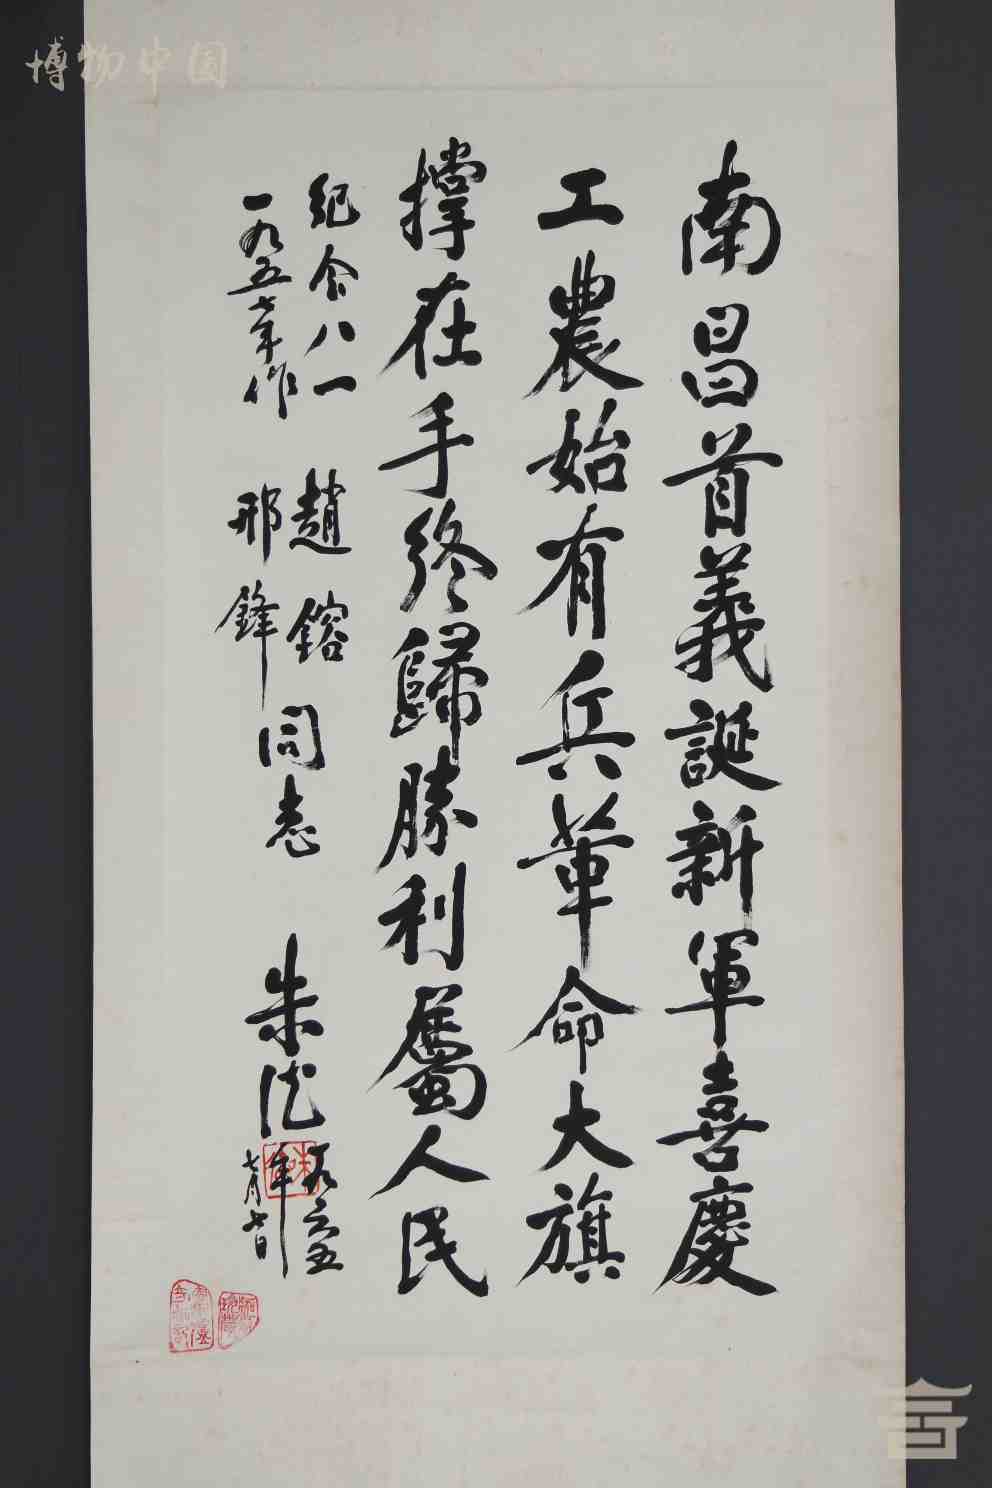 博物中国
南昌首義誕新軍喜慶
工農始有兵革命大旗
撑在手終歸勝利屬人民
紀念八一
一九五七年作
趙鎔
邢鋒
同志
朱德
一九六五
年
七月七日